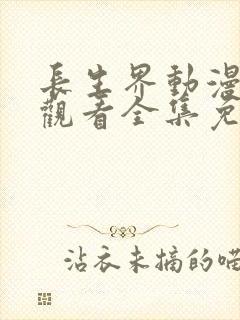 長生界動漫
觀看全集免
沾衣未摘的喵